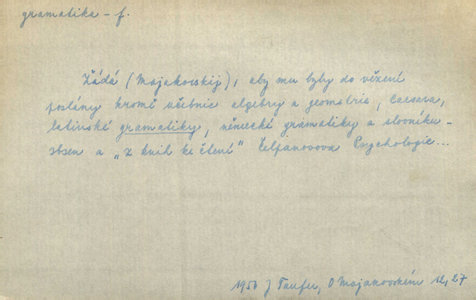 gramatika - f.
Žádá (Majakovskij), aby mu byly do vězení
poslány kromě učebnic algebry a geometrie, Caesara,
latinské gramatiky, německé gramatiky a slovníku -
Ibsen a „z knih ke čtení" Čelpanovova Psychologie...
1950 J Taufer, O Majakovském 12,27